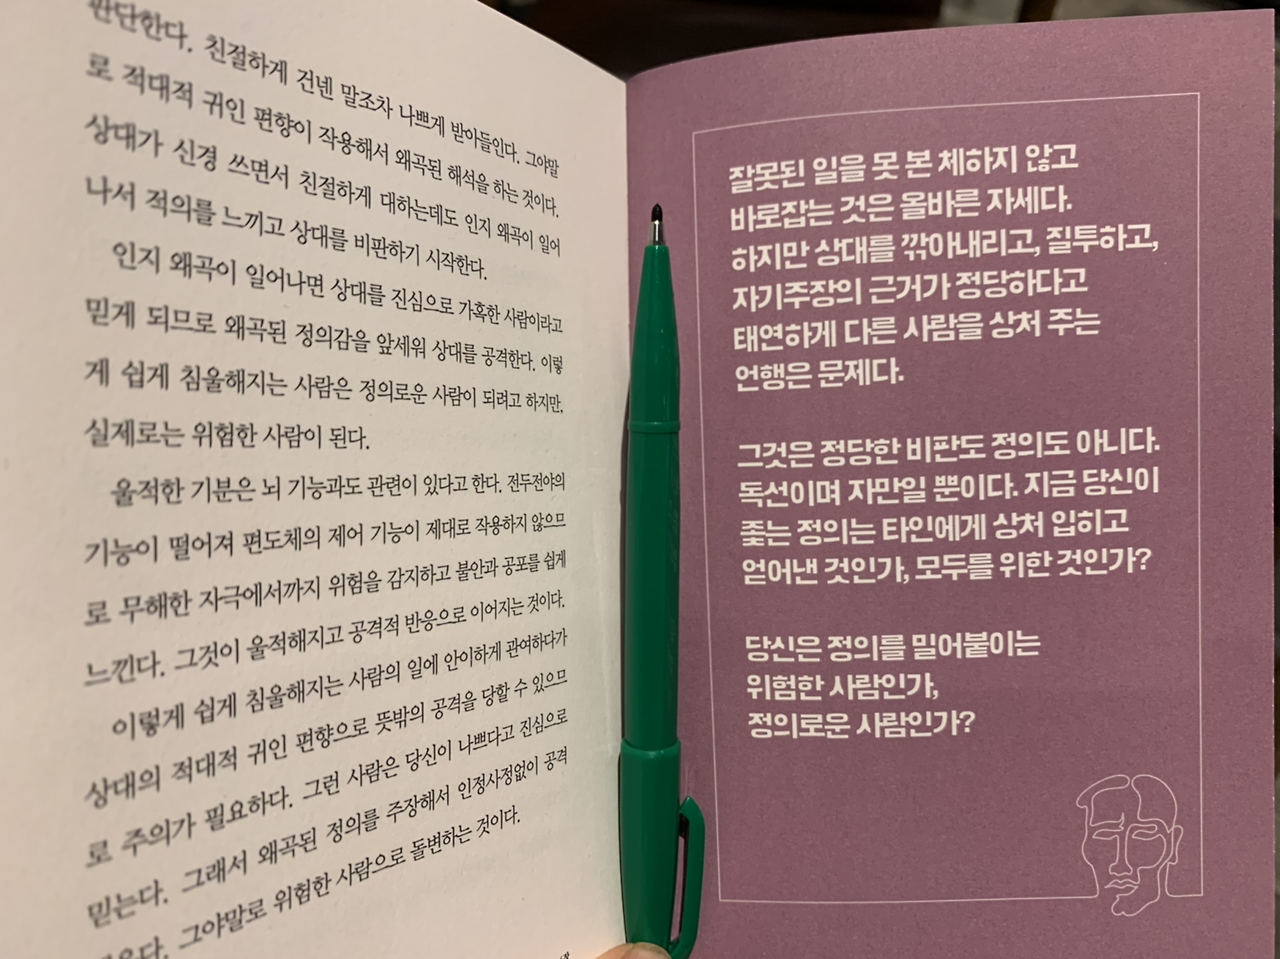 판단한다. 친절하게 건넨 말조차 나쁘게 받아들인다. 그야말
로 적대적 귀인 편향이 작용해서 왜곡된 해석을 하는 것이다.
상대가 신경 쓰면서 친절하게 대하는데도 인지 왜곡이 일어
나서 적의를 느끼고 상대를 비판하기 시작한다.
인지 왜곡이 일어나면 상대를 진심으로 가혹한 사람이라고
믿게 되므로 왜곡된 정의감을 앞세워 상대를 공격한다. 이렇
게 쉽게 침울해지는 사람은 정의로운 사람이 되려고 하지만,
실제로는 위험한 사람이 된다.
울적한 기분은 뇌 기능과도 관련이 있다고 한다. 전두전야의
기능이 떨어져 편도체의 제어 기능이 제대로 작용하지 않으므
로 무해한 자극에서까지 위험을 감지하고 불안과 공포를 쉽게
느낀다. 그것이 울적해지고 공격적 반응으로 이어지는 것이다.
이렇게 쉽게 침울해지는 사람의 일에 안이하게 관여하다가
상대의 적대적 귀인 편향으로 뜻밖의 공격을 당할 수 있으므
로 주의가 필요하다. 그런 사람은 당신이 나쁘다고 진심으로
믿는다. 그래서 왜곡된 정의를 주장해서 인정사정없이 공격
그야말로 위험한 사람으로 돌변하는 것이다.
잘못된 일을 못 본 체하지 않고
바로잡는 것은 올바른 자세다.
하지만 상대를 깎아내리고, 질투하고,
자기주장의 근거가 정당하다고
태연하게 다른 사람을 상처 주는
언행은 문제다.
그것은 정당한 비판도 정의도 아니다.
독선이며 자만일 뿐이다. 지금 당신이
좇는 정의는 타인에게 상처 입히고
얻어낸 것인가, 모두를 위한 것인가?
당신은 정의를 밀어붙이는
위험한 사람인가,
정의로운 사람인가?